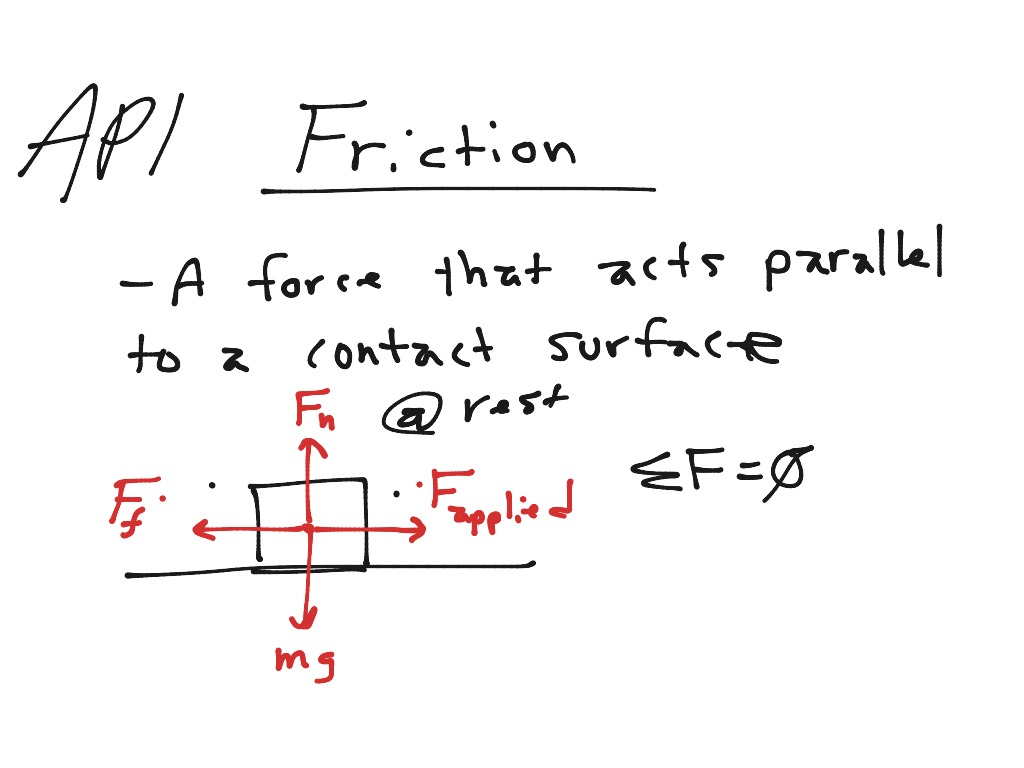 AP1 Friction
- A force that acts parallel
to a contact surface
@ rest
Fn
ΣF = Ø
Ff
Fapplied
mg